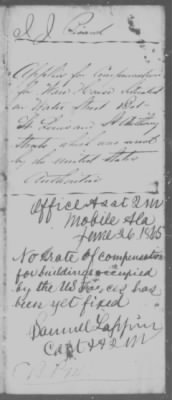 Applies for Compensation
for Ware House situated
on Water Street Bet-
St. Louis and St Anthony
Streets which was used
by the United States
Authorities
Office Asst 2 M
Mobile Ala
June 26 1865
No Rate of compensation
for buildings occupied
by the US Forces has
been yet fixed
Samuel Lappin
Capt &